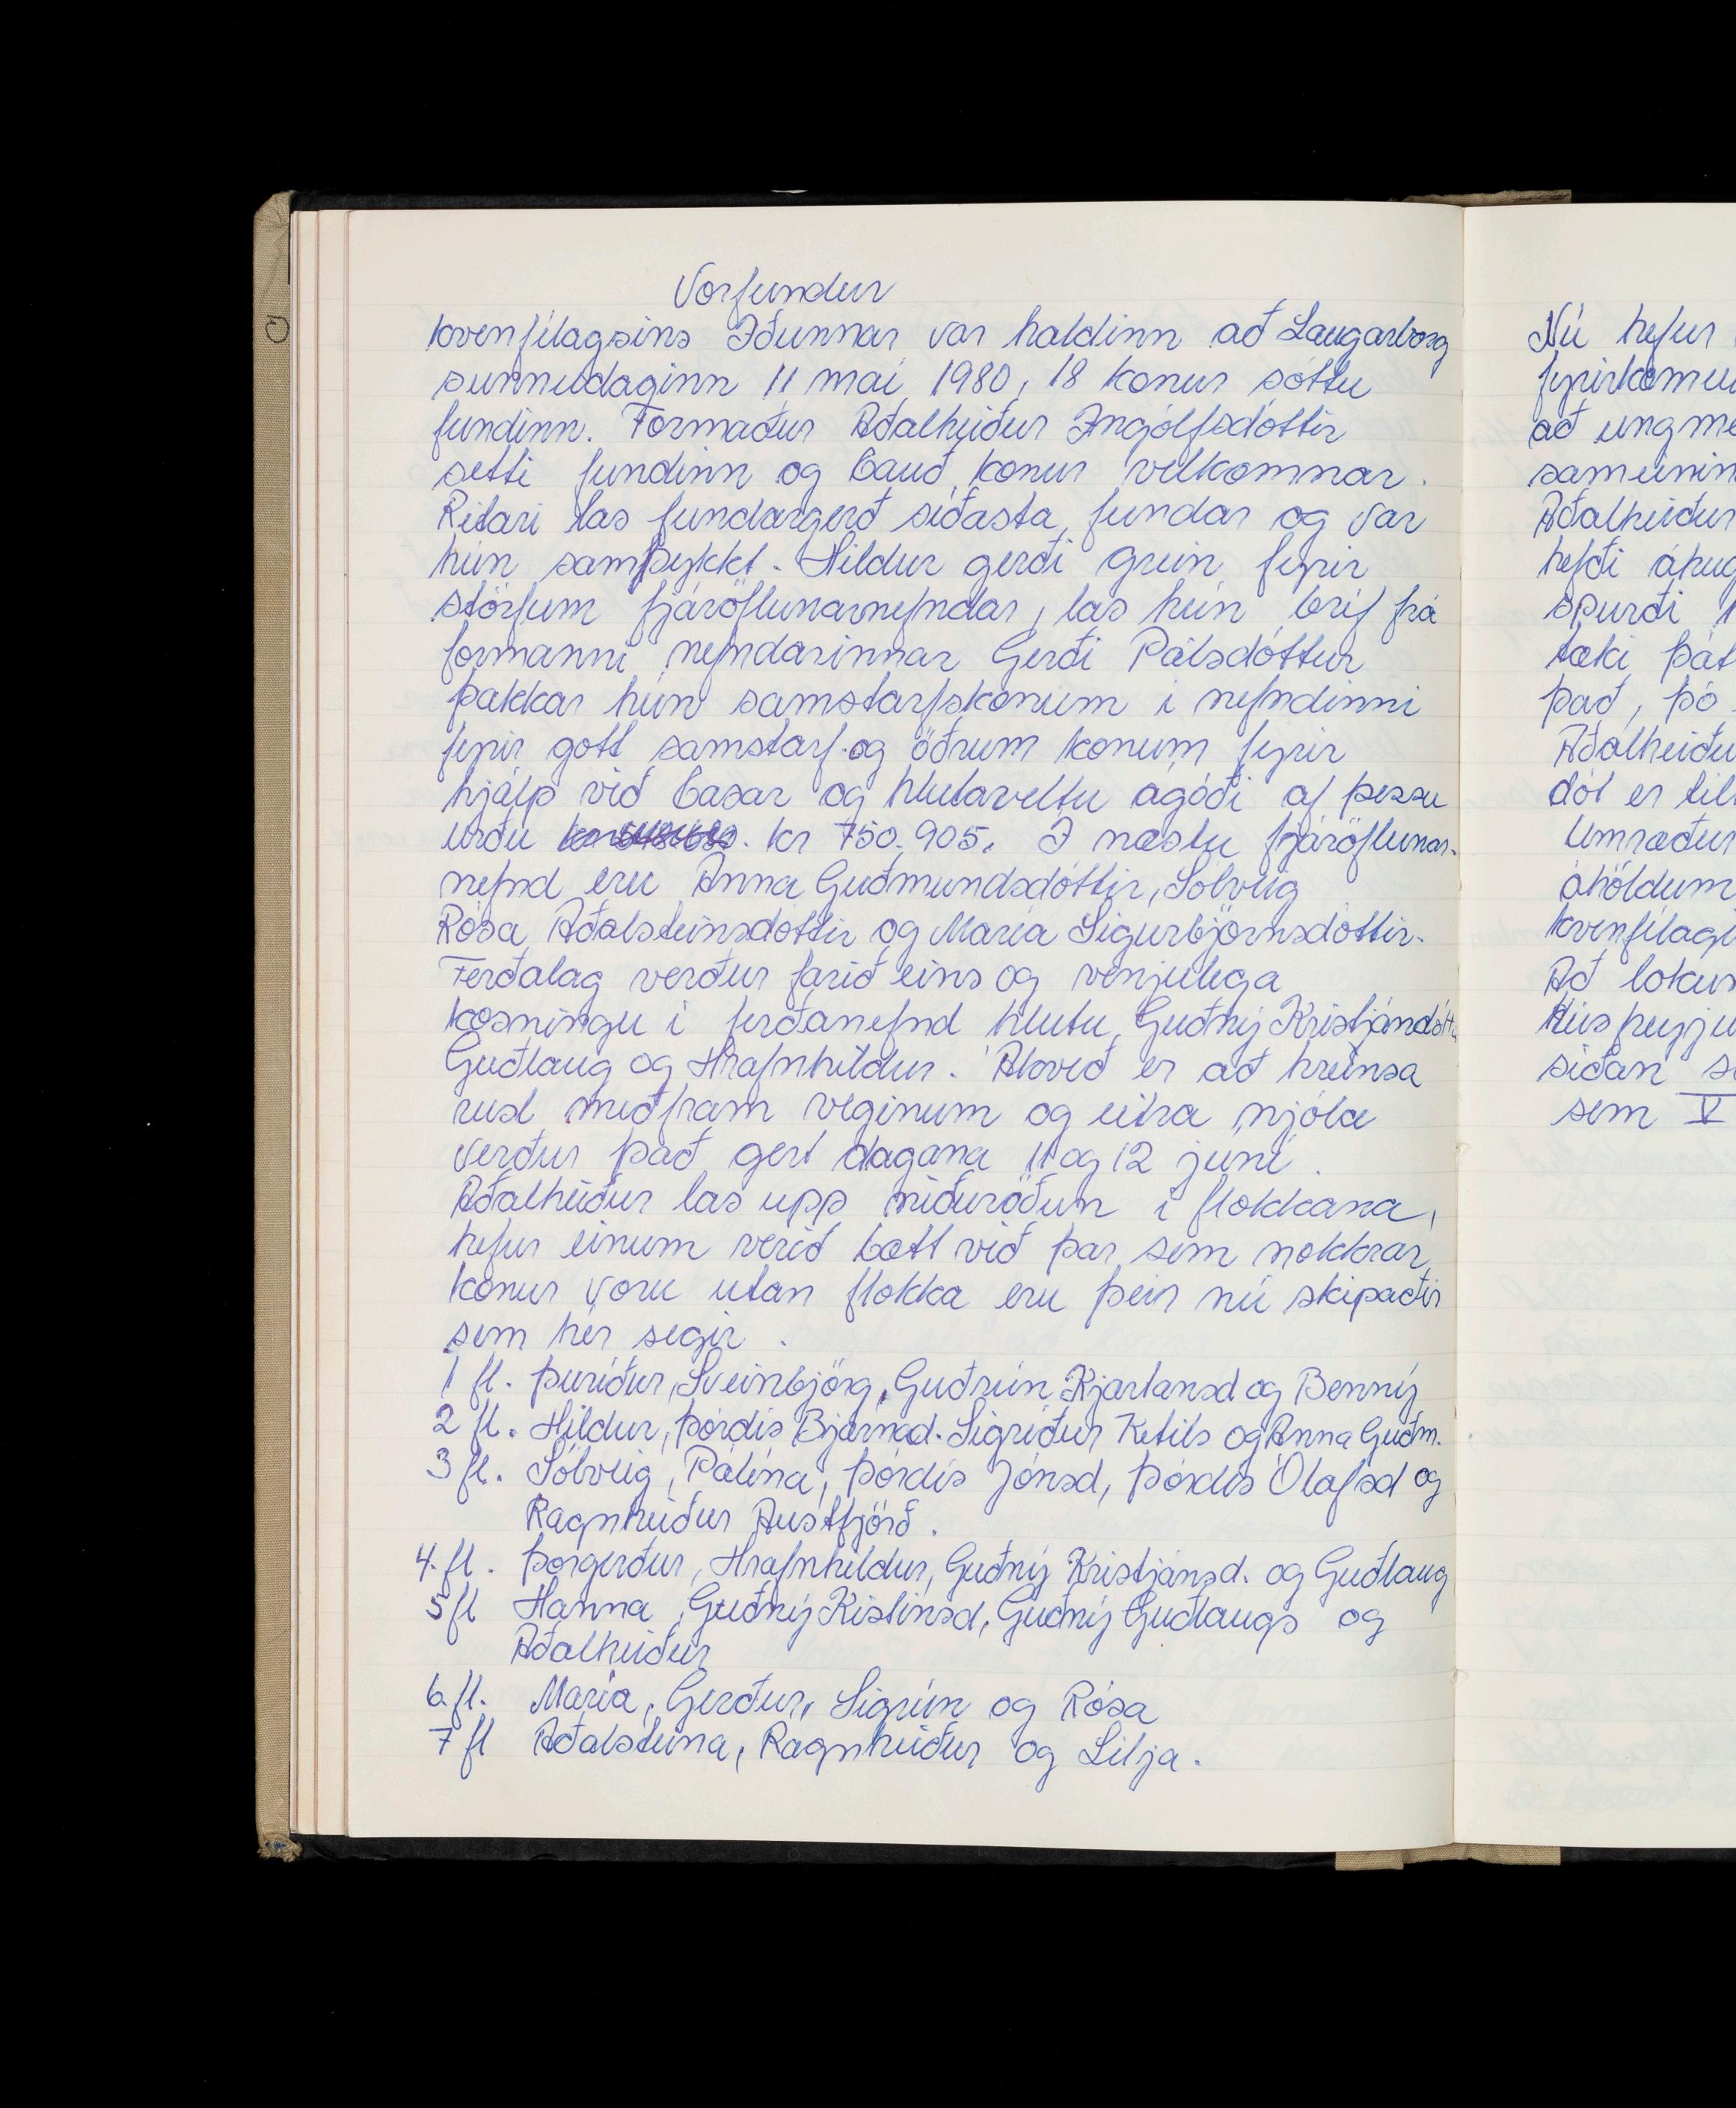 Vorfundur
kvenfélagsins Iðunnar var haldinn að Laugarborg
sunnudaginn 11 maí 1980, 18 konur sóttu
fundinn. Formaður Aðalheiður Ingólfsdóttir
setti fundinn og bauð konur velkomnar.
Ritari las fundargerð síðasta fundar og var
hún samþykkt. Hildur gerði grein fyrir
störfum fjáröflunarnefndar, las hún bréf frá
formanni nefndarinnar Gerði Pálsdóttur
þakkar hún samstarfskonum í nefndinni
fyrir gott samstarf og öðrum konum fyrir
hjálp við basar og hlutaveltu ágóði af þessu
urðu kr 750.905. Í næstu fjáröflunar-
nefnd eru Anna Guðmundsdóttir, Sólveig
Rósa Aðalsteinsdóttir og María Sigurbjörnsdóttir.
Ferðalag verður farið eins og venjulega
kosningu í ferðanefnd hlutu Guðný Kristjánsdótti
Guðlaug og Hrafnhildur. Ákveð er að hreinsa
rusl meðfram veginum og eitra njóla
verður það gert dagana 11 og 12 júní.
Aðalheiður las upp niðuröðun í flokkana,
hefur einum verið bætt við þar sem nokkrar
konur voru utan flokka eru þeir nú skipaðir
sem hér segir.
1 fl. Þuríður, Sveinbjörg, Guðrún Kjartansd og Benný
2 fl. Hildur, Þórdís Bjarnad. Sigríður Ketils og Anna Guðm.
3 fl. Sólveig, Pálína, Þórdís Jónsd, Þórdís Ólafsd og
Ragnheiður Austfjörð.
4. fl. Þorgerður, Hrafnhildur, Guðný Kristjánsd. og Guðlaug
5 fl Hanna, Guðný Kistinsd, Guðný Guðlaugs og
Aðalheiður
6. fl. María, Gerður, Sigrún og Rósa
7 fl Aðalsteina, Ragnheiður og Lilja.
Nú hefur
fyrirkomu
að ungme
sameinin
Aðalheiður
hefði áhug
spurði
tæki þát
það, þó
Aðalheiðu
dót er til
Umræður
áhöldum
kvenfélag
Að lokum
Húsfreyju
síðan s
sem V